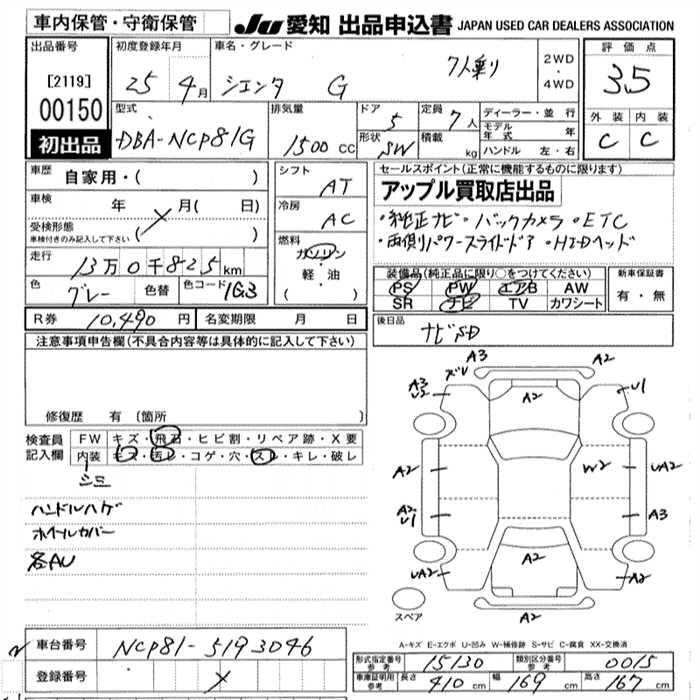 車内保管・守衛保管
JU 愛知 出品申込書 JAPAN USED CAR DEALERS ASSOCIATION
出品番号
[2119]
00150
初出品
初度登録年月
25 年 4月
車名・グレード
シエンタ G 7人乗り
2WD
・
4WD
評価点
3.5
外装 内装
C C
型式
DBA-NCP81G
排気量
1500 CC
ドア
5
形状
SW
定員
7人
積載
kg
ディーラー・並行
モデル年式 年
ハンドル 左・右
車歴
自家用・( )
車検
年 月( 日)
受検形態
車検付きのみ記入して下さい ( )
走行
13万0千825km
色
グレー
色替
色コード 1G3
シフト
AT
冷房
AC
燃料
ガソリン
・
軽・油
( )
セールスポイント(正常に機能するものに限ります)
アップル買取店出品
・純正ナビ・バックカメラ・ETC
・両側パワースライドドア・HIDヘッド
装備品(純正品に限り○をつけてください)
PS PW エアB AW
SR ナビ TV カワシート
新車保証書
有・無
R券 10,490 円 名変期限 月 日
後日品
ナビSD
注意事項申告欄(不具合内容等は具体的に記入して下さい)
修復歴 有 〔箇所 〕
検査員記入欄
FW キズ・飛石・ヒビ割・リペア跡・X要
内装 キズ・汚レ・コゲ・穴・スレ・キレ・破レ
シミ
ハンドルハゲ
ホイールカバー
各AU
A3 A2
ズレ
A3
U3 A2 U1
A2 W2 UA2
A2
U1 A3
UA2 A2 A2
スペア A2
A-キズ E-エクボ U-凹み W-補修跡 S-サビ C-腐食 XX-交換済
車台番号 NCP81-5193046
登録番号
形式指定番号 参考 15130 類別区分番号 参考 0015
車庫証明用 参考 長さ 410 cm 幅 169 cm 高さ 167 cm